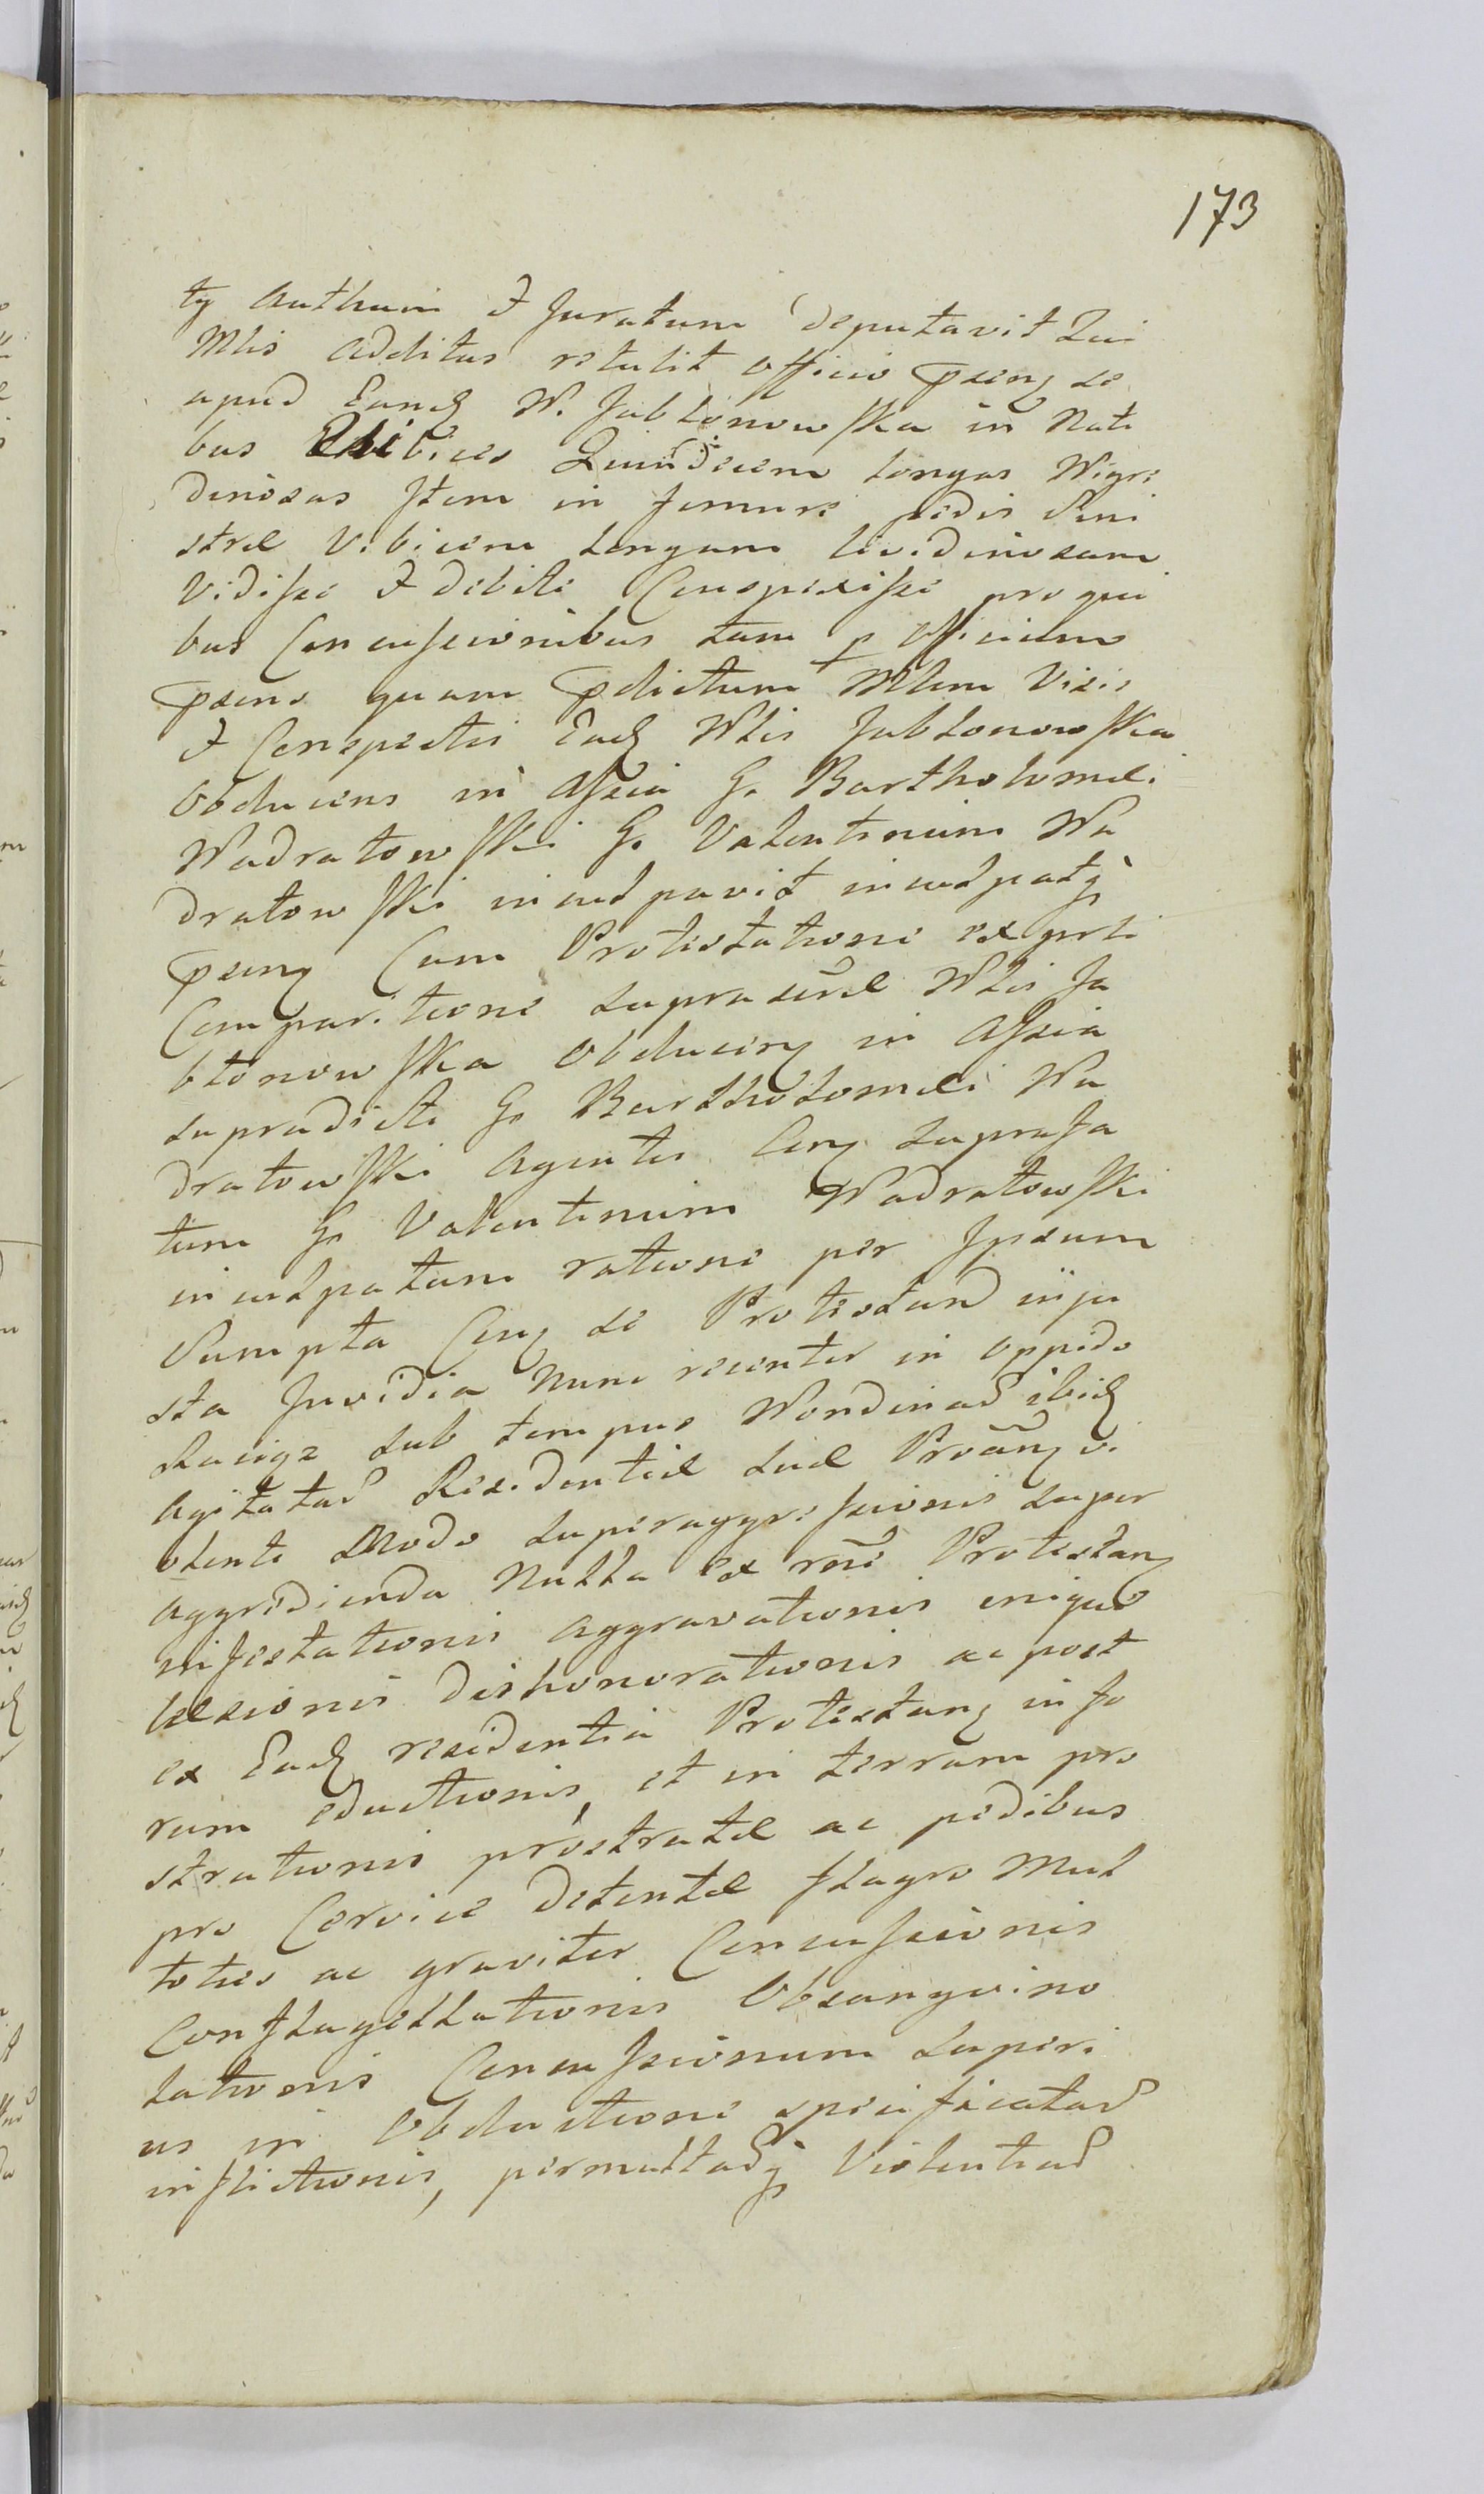 173
ty Authum & Juratum deputavit Qui
Mlis additus retulit officio psenq se
apud Eandꝫ W. Jabłonowska in Nati
bus Vibices Quindecem longas Nigri
dinosas Item in femure pedis Sini
stræ Vibicem longam lividinosam
Vidisse & debite Conspexisse pro qui
bus Concussionibus tam p officium
psens quam pdictum Mlem Visis
& Conspectis Eadꝫ Wlis Jabłonowska
Obducens in Assia G. Bartholomæi
Wadratowski G. Valentinum Wa
dratowski inculpavit inculpatq
psenq Cum Protestatione ex prte
Comparitione supra scrõæ Wlis Ja
błonowska Obducenq in Assia
supradicti G. Bartholomæi Wa
dratowski Agentis Conq supra fa
tum G. Valentinum Wadratowski
inculpatum ratione per Ipsum
Sumpta Conq se Protestand inju
sta Invidia Nunc recenter in oppido
Raciąz sub tempus Nondinar ibidꝫ
Agitatar Residentiæ suæ Proãnq vi
olenti Modo superaggressionis super
aggredienda Nulla ex rñe Protestanq
infestationis aggravationis eniquæ
læsionis dishonorationis ac post
ex Eadꝫ residentia Protestanq in fo
rum eductionis, et in terram pro
strationis prostratæ ac pedibus
pro Cervice detentæ flagro Mul
toties ac graviter Concussionis
Conflagellationis Obsangvino
lationis Concussionum superi
us in Obductione specificatar
inflictionis, permultarq Violentiar